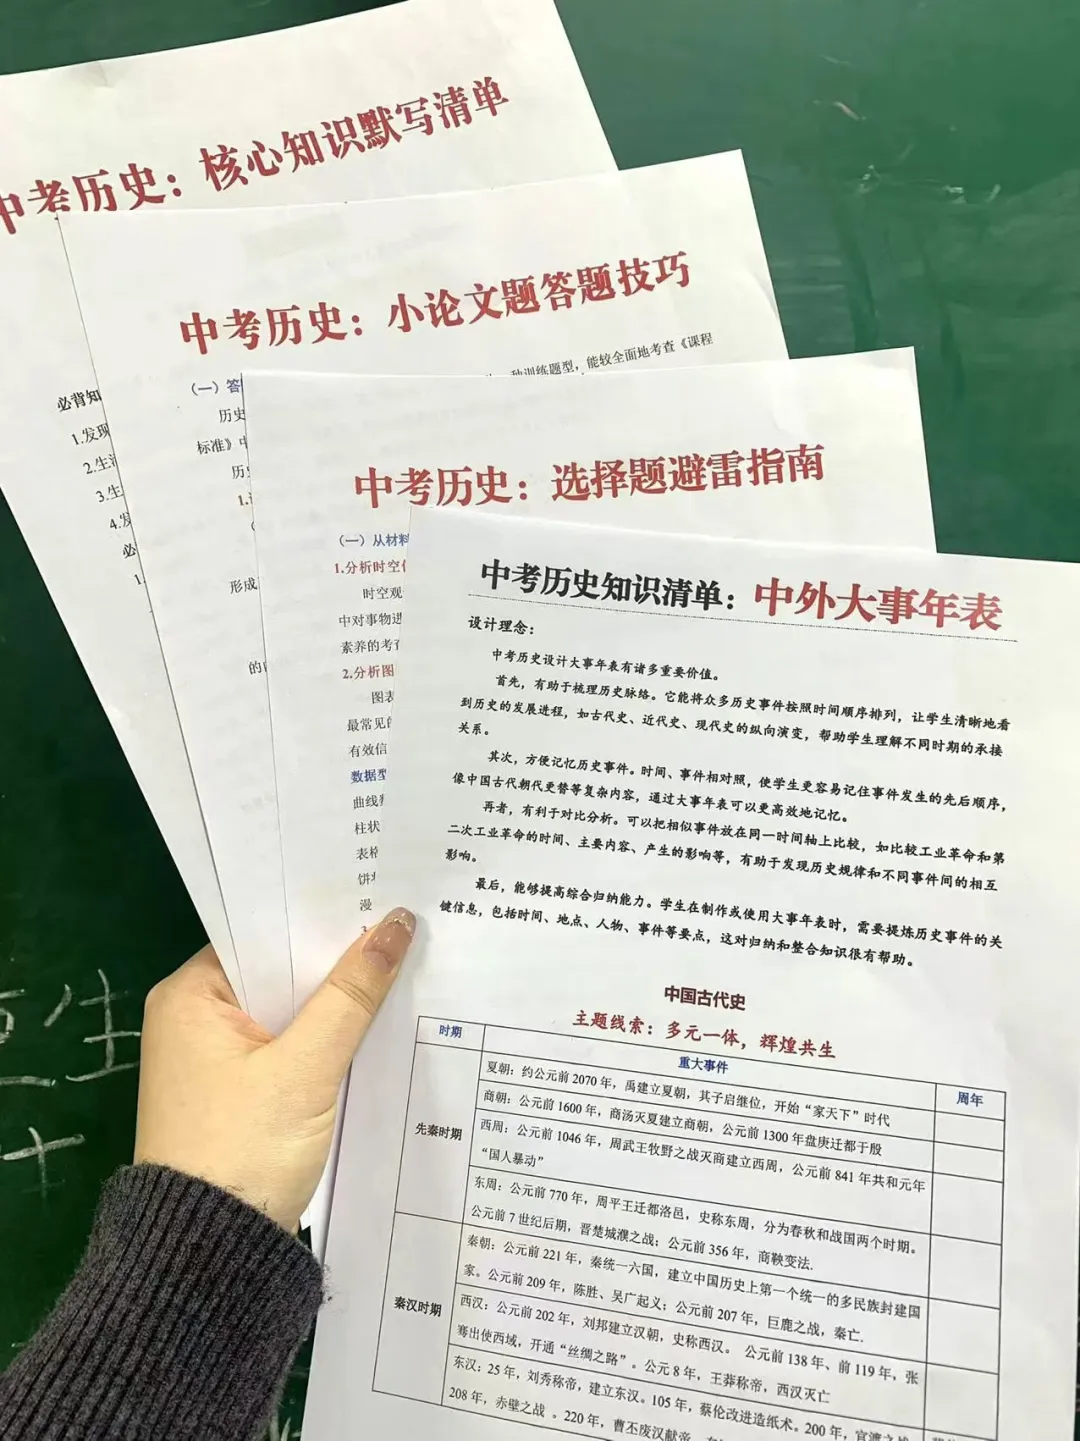 中考历史：核心知识默写清单
必背知
1.发现
2.生活
3.生
4.发
必
1.
中考历史：小论文题答题技巧
种训练题型，能较全面地考查《课程
（一）答
历史
标准》中
历史
1.
形成
的
中考历史：选择题避雷指南
（一）从材料
1.分析时空
时空观
中对事物进
素养的考查
2.分析图
图表
最常见的
有效信
数据型
曲线
柱状
表格
饼
漫
中考历史知识清单：中外大事年表
设计理念：
中考历史设计大事年表有诸多重要价值。
首先，有助于梳理历史脉络。它能将众多历史事件按照时间顺序排列，让学生清晰地看
到历史的发展进程，如古代史、近代史、现代史的纵向演变，帮助学生理解不同时期的承接
关系。
其次，方便记忆历史事件。时间、事件相对照，使学生更容易记住事件发生的先后顺序，
像中国古代朝代更替等复杂内容，通过大事年表可以更高效地记忆。
再者，有利于对比分析。可以把相似事件放在同一时间轴上比较，如比较工业革命和第
二次工业革命的时间、主要内容、产生的影响等，有助于发现历史规律和不同事件间的相互
影响。
最后，能够提高综合归纳能力。学生在制作或使用大事年表时，需要提炼历史事件的关
键信息，包括时间、地点、人物、事件等要点，这对归纳和整合知识很有帮助。
中国古代史
主题线索：多元一体，辉煌共生
时期
重大事件
周年
先秦时期
夏朝：约公元前 2070 年，禹建立夏朝，其子启继位，开始“家天下”时代
商朝：公元前 1600 年，商汤灭夏建立商朝，公元前 1300 年盘庚迁都于殷
西周：公元前 1046 年，周武王牧野之战灭商建立西周，公元前 841 年共和元年
“国人暴动”
东周：公元前 770 年，周平王迁都洛邑，史称东周，分为春秋和战国两个时期。
公元前 7 世纪后期，晋楚城濮之战；公元前 356 年，商鞅变法.
秦汉时期
秦朝：公元前 221 年，秦统一六国，建立中国历史上第一个统一的多民族封建国
家。公元前 209 年，陈胜、吴广起义；公元前 207 年，巨鹿之战，秦亡.
西汉：公元前 202 年，刘邦建立汉朝，史称西汉。 公元前 138 年、前 119 年，张
骞出使西域，开通“丝绸之路”。公元 8 年，王莽称帝，西汉灭亡
东汉：25 年，刘秀称帝，建立东汉。105 年，蔡伦改进造纸术。200 年，官渡之战
208 年，赤壁之战 。220 年，曹丕废汉献帝
生